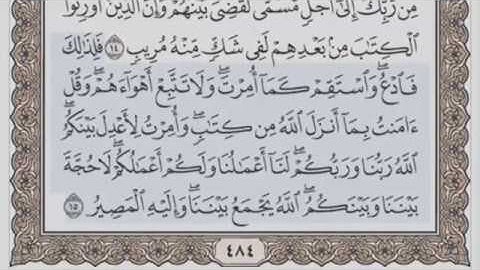 مِن رَّبِّكَ إِلَىٰٓ أَجَلٍ مُّسَمًّى لَّقُضِيَ بَيْنَهُمْ وَإِنَّ ٱلَّذِينَ أُورِثُوا۟
ٱلْكِتَٰبَ مِنۢ بَعْدِهِمْ لَفِى شَكٍّ مِّنْهُ مُرِيبٍ ١٤ فَلِذَٰلِكَ
فَٱدْعُ ۖ وَٱسْتَقِمْ كَمَآ أُمِرْتَ ۖ وَلَا تَتَّبِعْ أَهْوَآءَهُمْ ۖ وَقُلْ
ءَامَنتُ بِمَآ أَنزَلَ ٱللَّهُ مِن كِتَٰبٍ ۖ وَأُمِرْتُ لِأَعْدِلَ بَيْنَكُمُ ۖ
ٱللَّهُ رَبُّنَا وَرَبُّكُمْ ۖ لَنَآ أَعْمَٰلُنَا وَلَكُمْ أَعْمَٰلُكُمْ ۖ لَا حُجَّةَ
بَيْنَنَا وَبَيْنَكُمُ ۖ ٱللَّهُ يَجْمَعُ بَيْنَنَا ۖ وَإِلَيْهِ ٱلْمَصِيرُ ١٥
٤٨٤